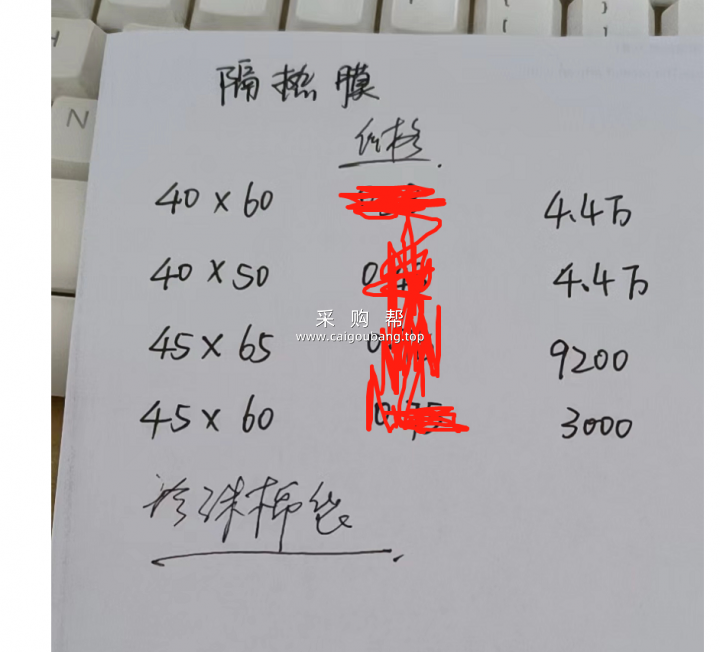 隔热膜
价格
40 x 60 4.4万
40 x 50 4.4万
采购帮
www.caigoubang.top
45 x 65 9200
45 x 60 0.75 3000
珍珠棉袋